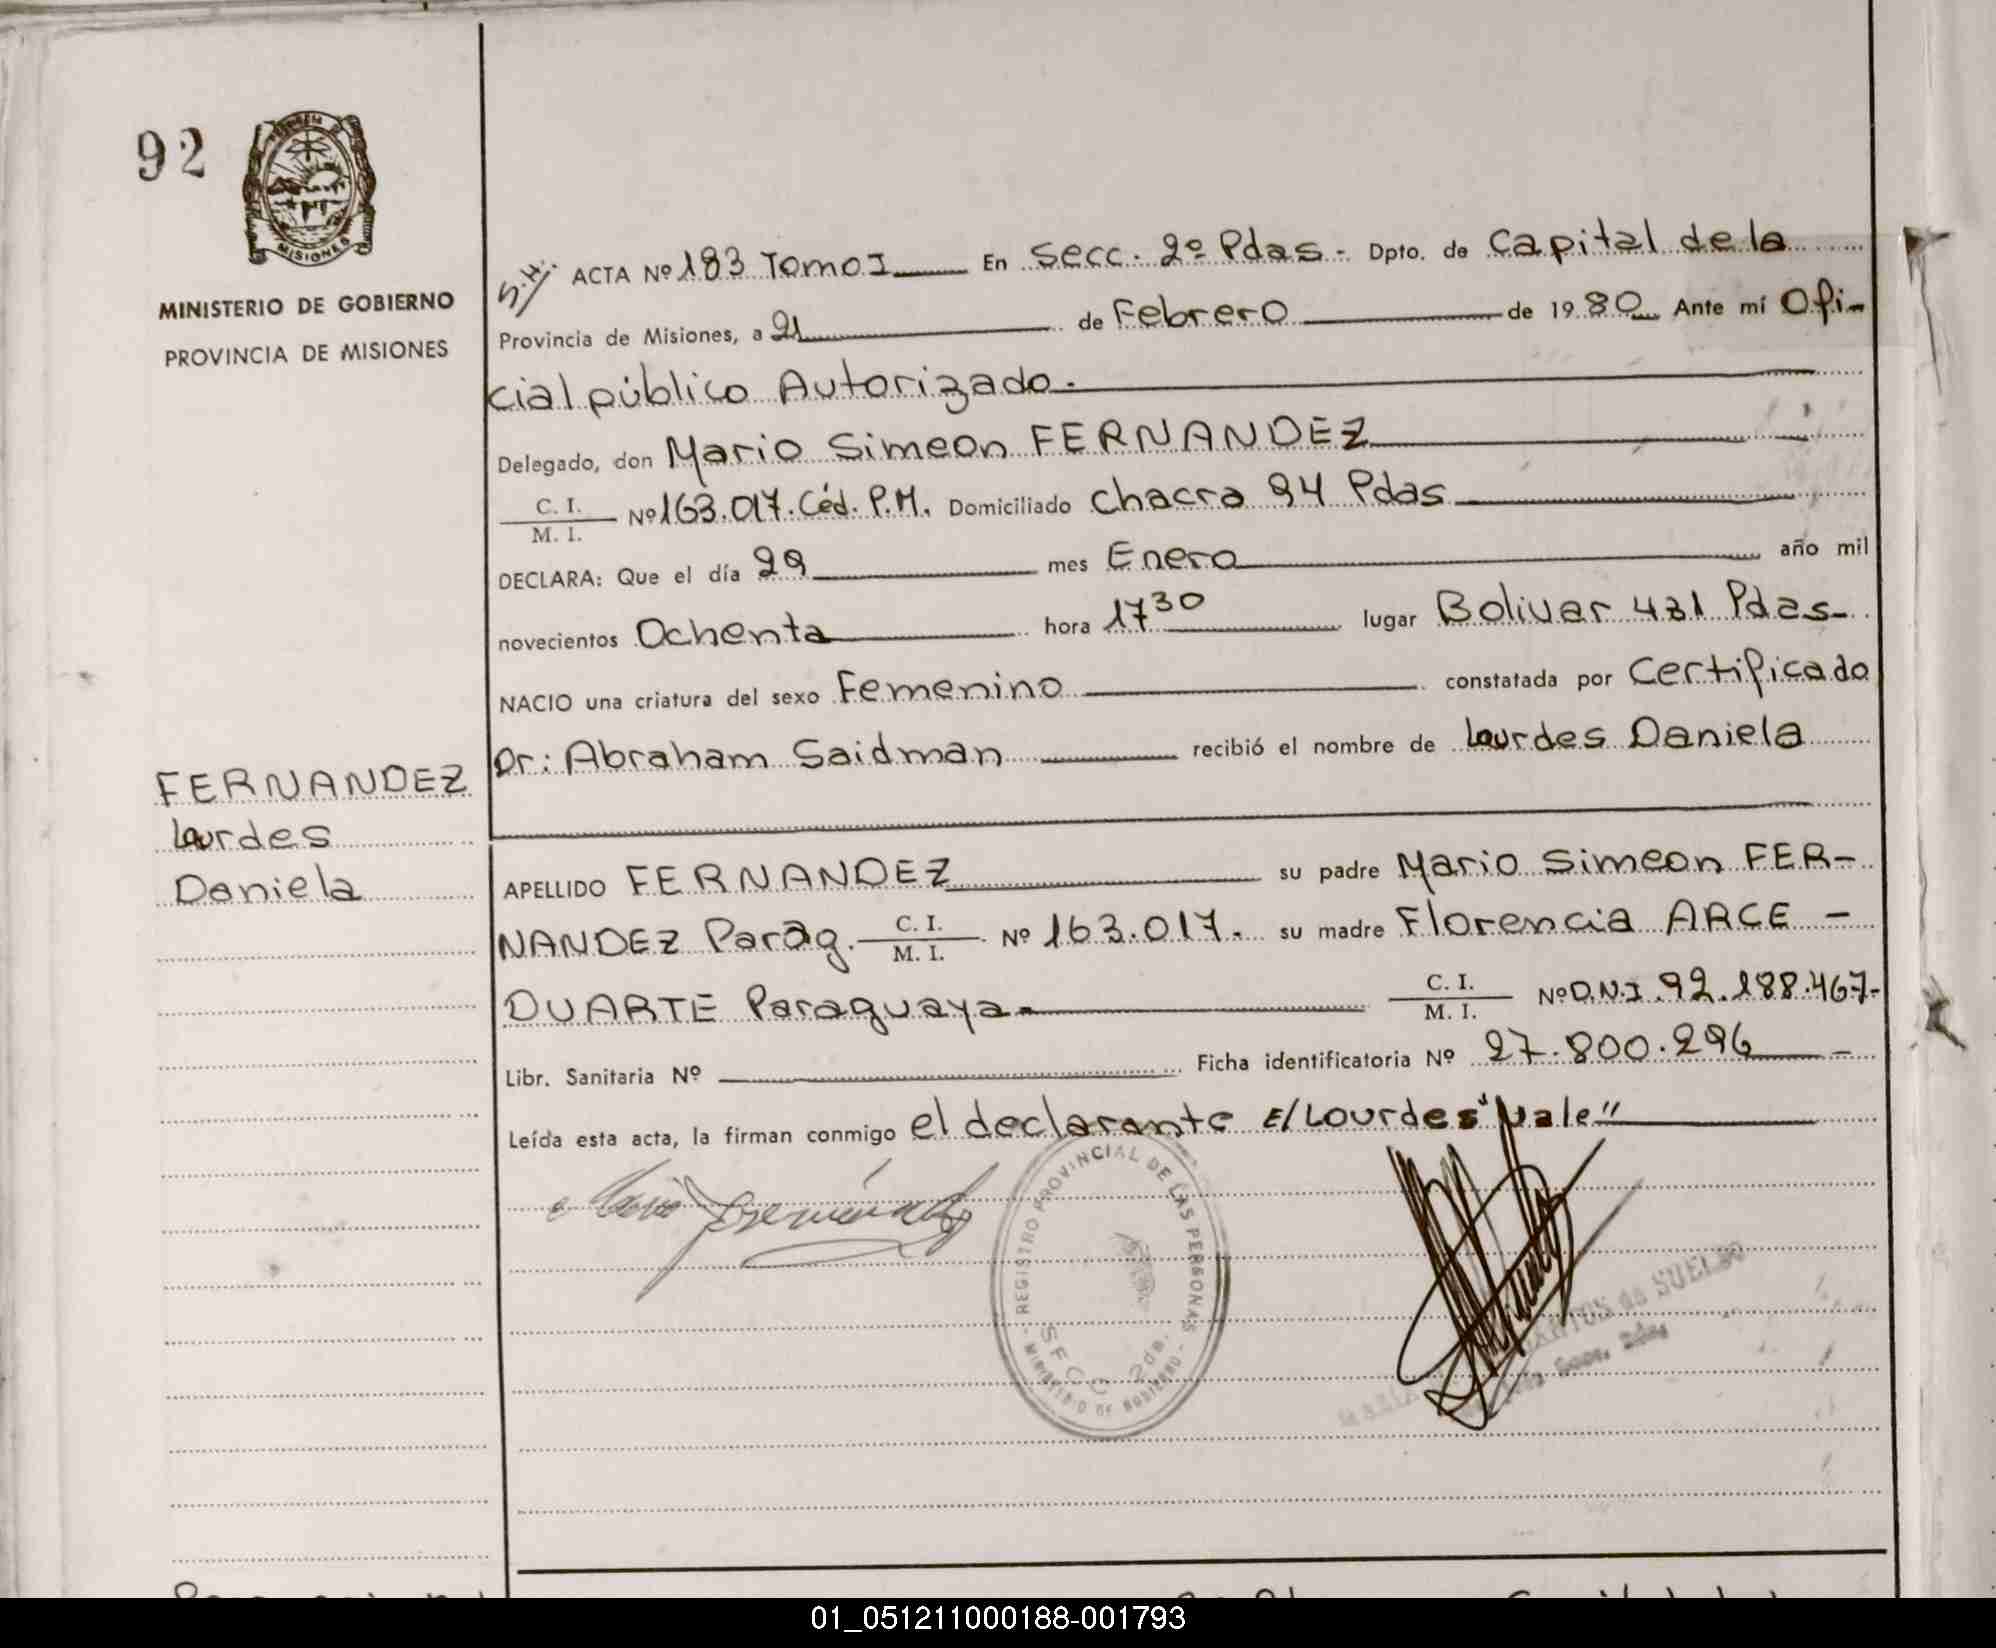 92
MISIONES
MINISTERIO DE GOBIERNO
PROVINCIA DE MISIONES
FERNANDEZ
Lourdes
Daniela
S.H. ACTA Nº 183 Tomo I En Secc. 2º Pdas - Dpto. de Capital de la
Provincia de Misiones, a 21 de Febrero de 1980 Ante mí Ofi-
cial público Autorizado.
Delegado, don Mario Simeon FERNANDEZ
C. I.
M. I. Nº 163.017. Céd. P.M. Domiciliado Chacra 94 Pdas
DECLARA: Que el día 29 mes Enero año mil
novecientos Ochenta hora 17 30 lugar Bolivar 431 Pdas-
NACIO una criatura del sexo Femenino constatada por Certificado
Dr: Abraham Saidman recibió el nombre de Lourdes Daniela
APELLIDO FERNANDEZ su padre Mario Simeon FER-
NANDEZ Parag. C. I.
M. I. Nº 163.017. su madre Florencia ARCE -
DUARTE Paraguaya- C. I.
M. I. Nº D.N.I. 92.188.467-
Libr. Sanitaria Nº Ficha identificatoria Nº 27.800.296 -
Leída esta acta, la firman conmigo el declarante E/Lourdes "Vale"
REGISTRO PROVINCIAL DE LAS PERSONAS
SECC 2da.
- MINISTERIO DE GOBIERNO -
SANTOS de SUELDO
01_051211000188-001793